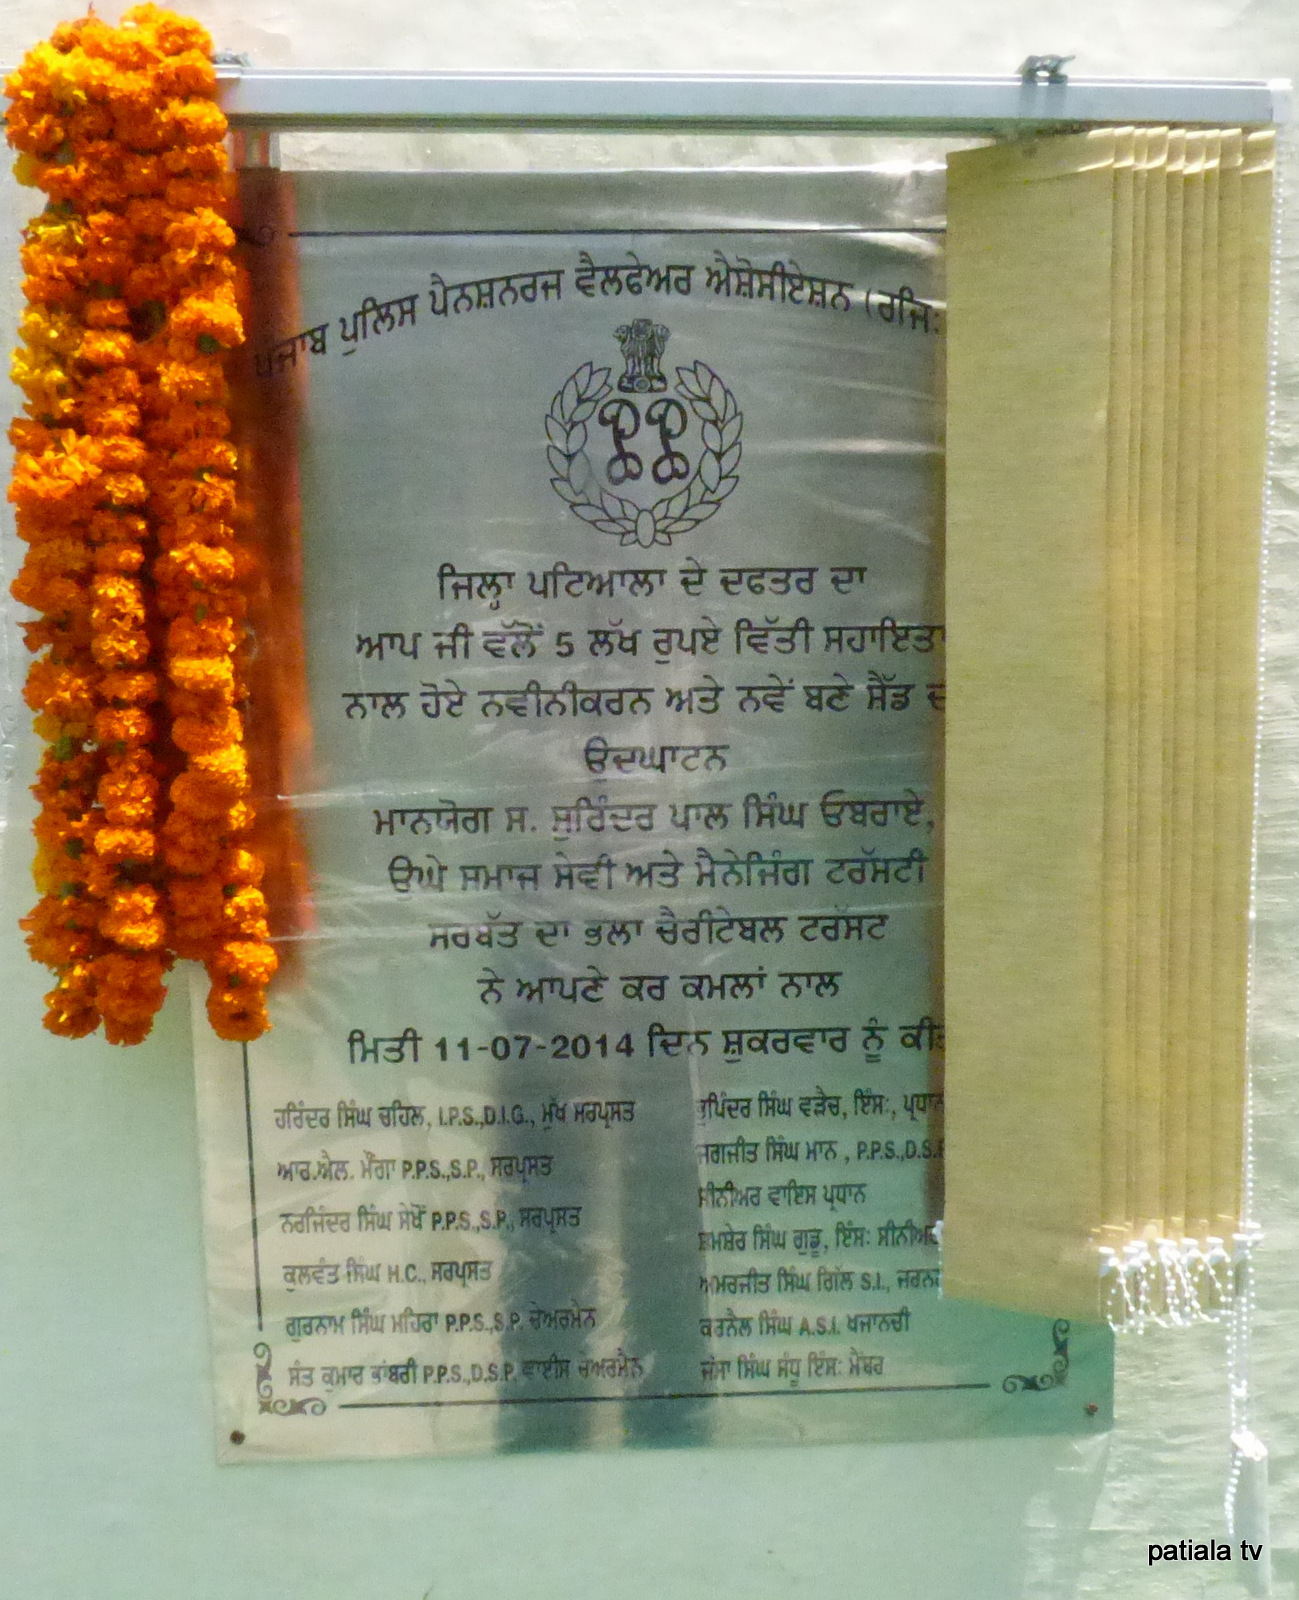 ਪੰਜਾਬ ਪੁਲਿਸ ਪੈਨਸ਼ਨਰਜ ਵੈਲਫੇਅਰ ਐਸ਼ੋਸੀਏਸ਼ਨ (ਰਜਿ:
ਪੁਪੁ
ਜਿਲ੍ਹਾ ਪਟਿਆਲਾ ਦੇ ਦਫਤਰ ਦਾ
ਆਪ ਜੀ ਵੱਲੋਂ 5 ਲੱਖ ਰੁਪਏ ਵਿੱਤੀ ਸਹਾਇਤਾ
ਨਾਲ ਹੋਏ ਨਵੀਨੀਕਰਨ ਅਤੇ ਨਵੇਂ ਬਣੇ ਸ਼ੈੱਡ ਦ
ਉਦਘਾਟਨ
ਮਾਨਯੋਗ ਸ. ਸੁਰਿੰਦਰ ਪਾਲ ਸਿੰਘ ਓਬਰਾਏ,
ਉਘੇ ਸਮਾਜ ਸੇਵੀ ਅਤੇ ਮੈਨੇਜਿੰਗ ਟਰੱਸਟੀ
ਸਰਬੱਤ ਦਾ ਭਲਾ ਚੈਰੀਟੇਬਲ ਟਰੱਸਟ
ਨੇ ਆਪਣੇ ਕਰ ਕਮਲਾਂ ਨਾਲ
ਮਿਤੀ 11-07-2014 ਦਿਨ ਸ਼ੁਕਰਵਾਰ ਨੂੰ ਕੀਤ
ਹਰਿੰਦਰ ਸਿੰਘ ਚਹਿਲ, I.P.S.,D.I.G., ਮੁੱਖ ਸਰਪ੍ਰਸਤ
ਆਰ.ਐਲ. ਮੌਂਗਾ P.P.S.,S.P., ਸਰਪ੍ਰਸਤ
ਨਰਜਿੰਦਰ ਸਿੰਘ ਸੇਖੋਂ P.P.S.,S.P., ਸਰਪ੍ਰਸਤ
ਕੁਲਵੰਤ ਸਿੰਘ H.C., ਸਰਪ੍ਰਸਤ
ਗੁਰਨਾਮ ਸਿੰਘ ਮਹਿਰਾ P.P.S.,S.P. ਚੇਅਰਮੈਨ
ਸੰਤ ਕੁਮਾਰ ਭਾਂਬਰੀ P.P.S.,D.S.P. ਵਾਈਸ ਚੇਅਰਮੈਨ
ਭੁਪਿੰਦਰ ਸਿੰਘ ਵੜੈਚ, ਇੰਸ:, ਪ੍ਰਧਾਨ
ਜਗਜੀਤ ਸਿੰਘ ਮਾਨ , P.P.S.,D.S.P
ਸੀਨੀਅਰ ਵਾਇਸ ਪ੍ਰਧਾਨ
ਸ਼ਮਸ਼ੇਰ ਸਿੰਘ ਗੁਡੂ, ਇੰਸ: ਸੀਨੀਅਰ
ਅਮਰਜੀਤ ਸਿੰਘ ਗਿੱਲ S.I., ਜਰਨ
ਕਰਨੈਲ ਸਿੰਘ A.S.I. ਖਜਾਨਚੀ
ਜੱਸਾ ਸਿੰਘ ਸੰਧੂ ਇੰਸ: ਮੈਂਬਰ
patiala tv